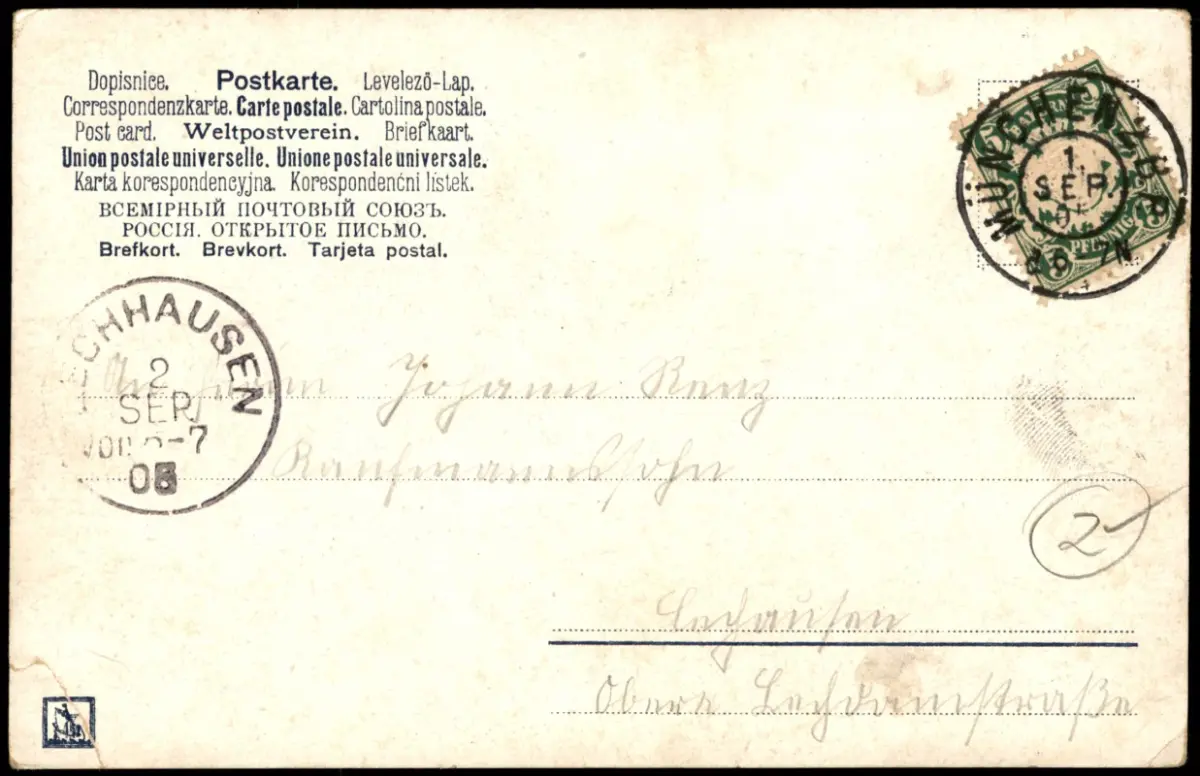 Dopisnice. Postkarte. Levelezõ-Lap.
Correspondenzkarte. Carte postale. Cartolina postale.
Post card. Weltpostverein. Briefkaart.
Union postale universelle. Unione postale universale.
Karta korespondencyjna. Korespondenčni listek.
ВСЕМІРНЫЙ ПОЧТОВЫЙ СОЮЗЪ.
РОССІЯ. ОТКРЫТОЕ ПИСЬМО.
Brefkort. Brevkort. Tarjeta postal.
BAYERN
PFENNIG
MÜNCHEN 2 B.P.
1.
SEP.
N
CHHAUSEN
2
SEP
-7
An Herrn Johann Renz
Kaufmannssohn
2
Lechausen
Obere Lechdamstraße